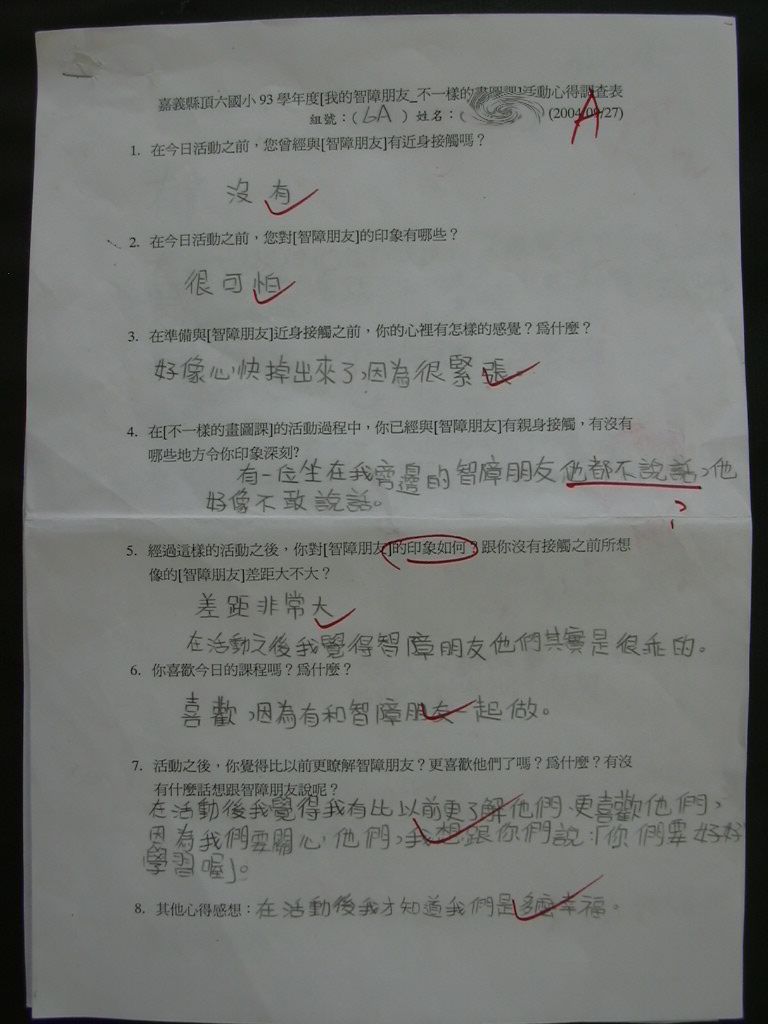 嘉義縣頂六國小93學年度[我的智障朋友_不一樣的畫圖課]活動心得調查表
組號：( 6A ) 姓名：( ) (2004/09/27)
A
1. 在今日活動之前，您曾經與[智障朋友]有近身接觸嗎？
沒有
2. 在今日活動之前，您對[智障朋友]的印象有哪些？
很可怕
3. 在準備與[智障朋友]近身接觸之前，你的心裡有怎樣的感覺？為什麼？
好像心快掉出來了，因為很緊張。
4. 在[不一樣的畫圖課]的活動過程中，你已經與[智障朋友]有親身接觸，有沒有
哪些地方令你印象深刻?
有一位坐在我旁邊的智障朋友他都不說話，他
好像不敢說話。
?
5. 經過這樣的活動之後，你對[智障朋友]的印象如何？跟你沒有接觸之前所想
像的[智障朋友]差距大不大？
差距非常大
在活動之後我覺得智障朋友他們其實是很乖的。
6. 你喜歡今日的課程嗎？為什麼？
喜歡，因為有和智障朋友一起做。
7. 活動之後，你覺得比以前更瞭解智障朋友？更喜歡他們了嗎？為什麼？有沒
有什麼話想跟智障朋友說呢？
在活動後我覺得我有比以前更了解他們、更喜歡他們，
因為我們要關心他們，我想跟你們說：「你們要好好
學習喔」。
8. 其他心得感想：在活動後我才知道我們是多麼幸福。